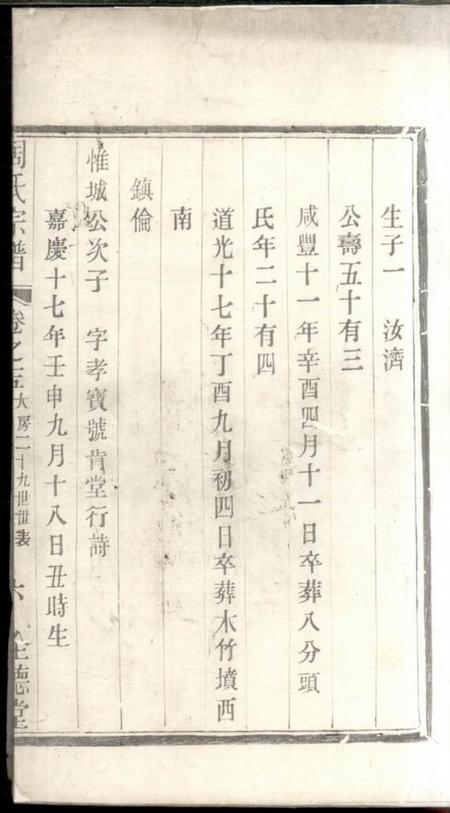 生子一　汝濟
公壽五十有三
咸豐十一年辛酉四月十一日卒葬八分頭
氏年二十有四
道光十七年丁酉九月初四日卒葬木竹墳西
南
鎮倫
惟城公次子　字孝寶號肯堂行詩
嘉慶十七年壬申九月十八日丑時生
周氏宗譜　卷之五　大房二十九世世表　六　德堂